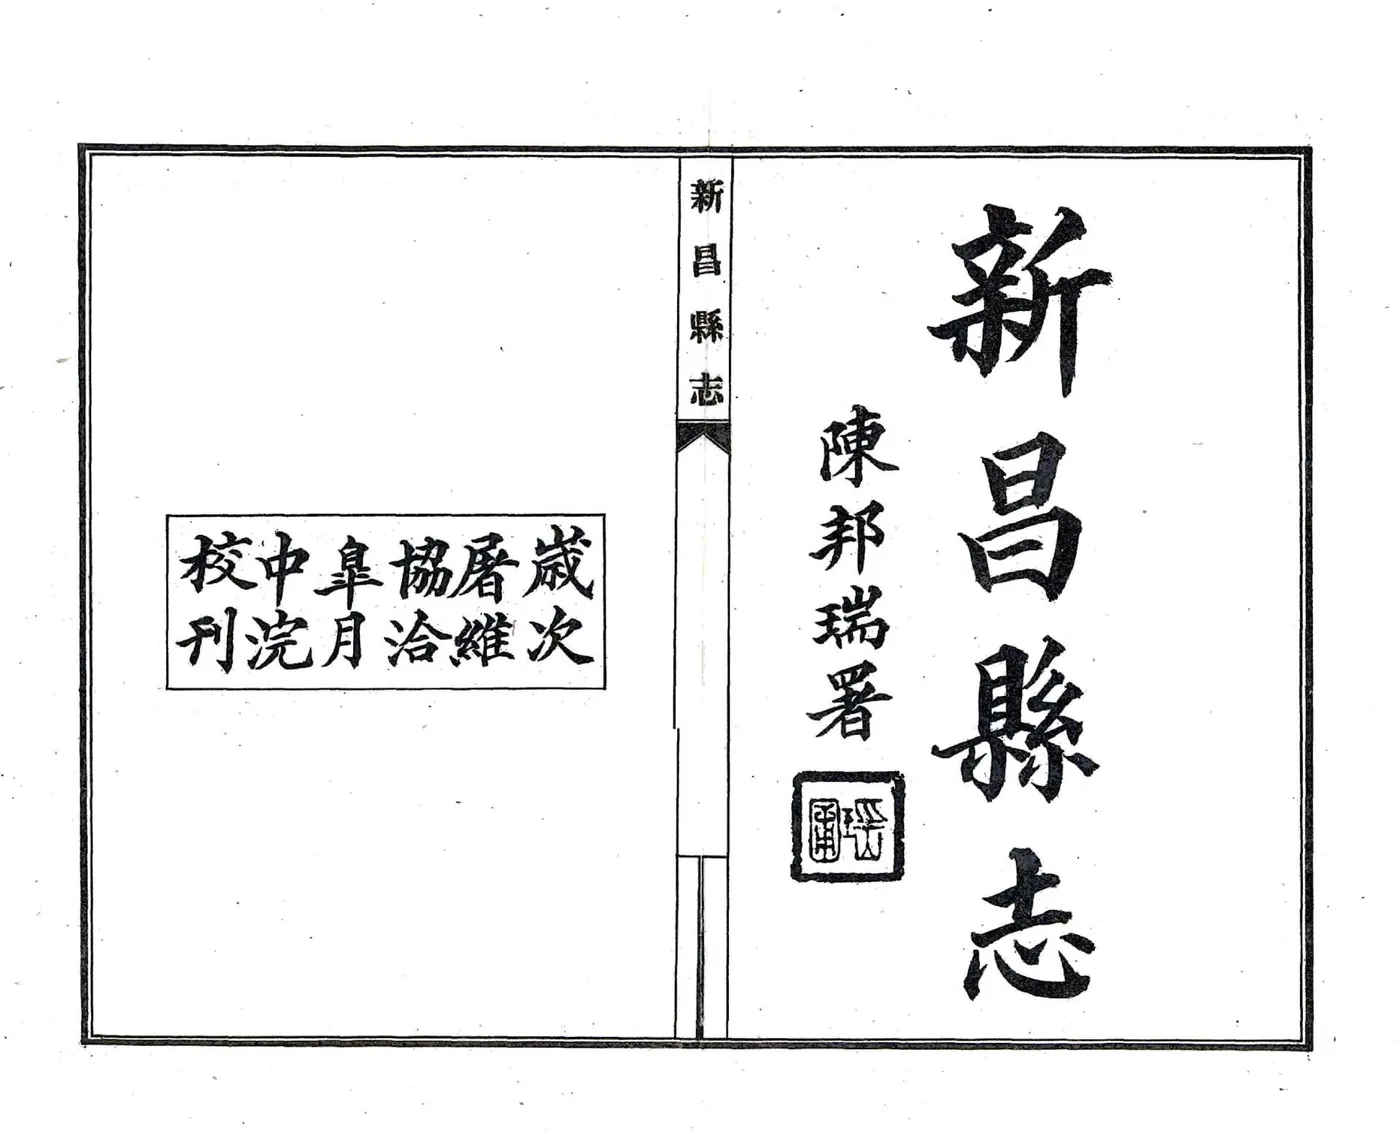 新昌縣志
陳邦瑞署
新昌縣志
歲次
屠維
協洽
皐月
中浣
校刊